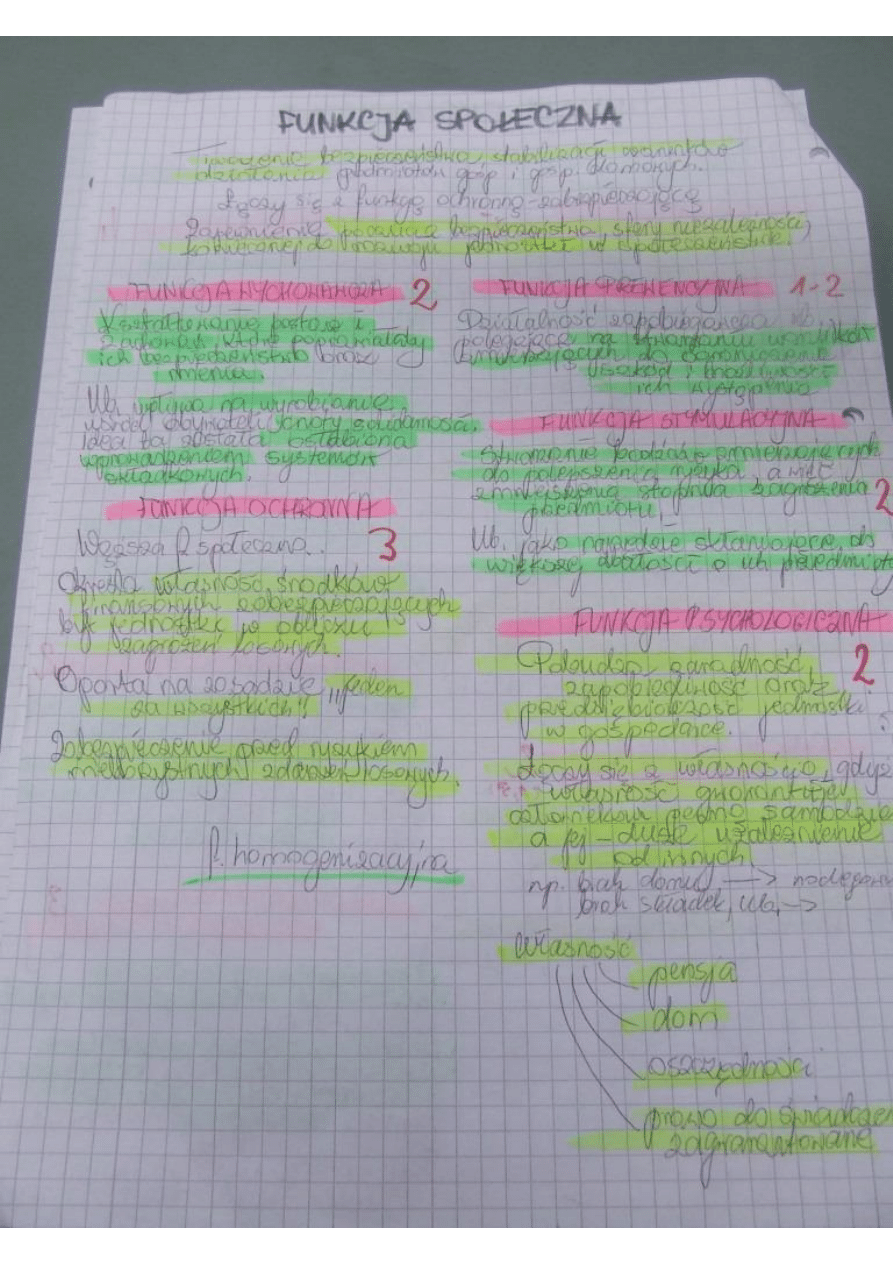 FUNKCJA SPOŁECZNA
Tworzenie bezpieczeństwa, stabilizacji warunków
działania podmiotów gosp i gosp. domowych.
Łączy się z funkcją ochronną-zabezpieczającą
Zapewnienie poczucia bezpieczeństwa, sfery niezależności,
koniecznej do rozwoju jednostki w społeczeństwie.
FUNKCJA WYCHOWAWCZA 2
Kształtowanie postaw i
zachowań, które
ich bezpieczeństwo oraz
mienia.
Ub. wpływa na wyrobienie
wśród obywateli cnoty solidarności,
idea ta została osłabiona
wprowadzeniem systemów
składkowych.
FUNKCJA OCHRONNA
Węższa f. społeczna. 3
Określa własność środków
finansowych zabezpieczających
byt jednostki w obliczu
zagrożeń losowych.
Oparta na zasadzie "jeden
za wszystkich"
Zabezpieczenie przed ryzykiem
niekorzystnych zdarzeń losowych.
f. homogenizacyjna
FUNKCJA PREWENCYJNA 1-2
Działalność zapobiegawcza ub.
polegająca na stwarzaniu warunków
zmierzających do ograniczenia
szkód i możliwości
ich wystąpienia
FUNKCJA STYMULACYJNA
Stworzenie bodźców zmierzających
do polepszenia ryzyka, a więc
zmniejszenia stopnia zagrożenia 2
przedmiotu.
Ub. jako narzędzie skłaniające do
większej dbałości o ub. przedmioty
FUNKCJA PSYCHOLOGICZNA
Pobudza zaradność, 2
zapobiegliwość oraz
przedsiębiorczość jednostki
w gospodarce.
Łączy się z własnością, gdyż
własność gwarantuje
członkowi pewną samodzie
a jej - duże uzależnienie
od innych
np. brak domu → 
brak składek, ub. →
Własność
pensja
dom
oszczędności
prawo do świadczeń
zagwarantowane